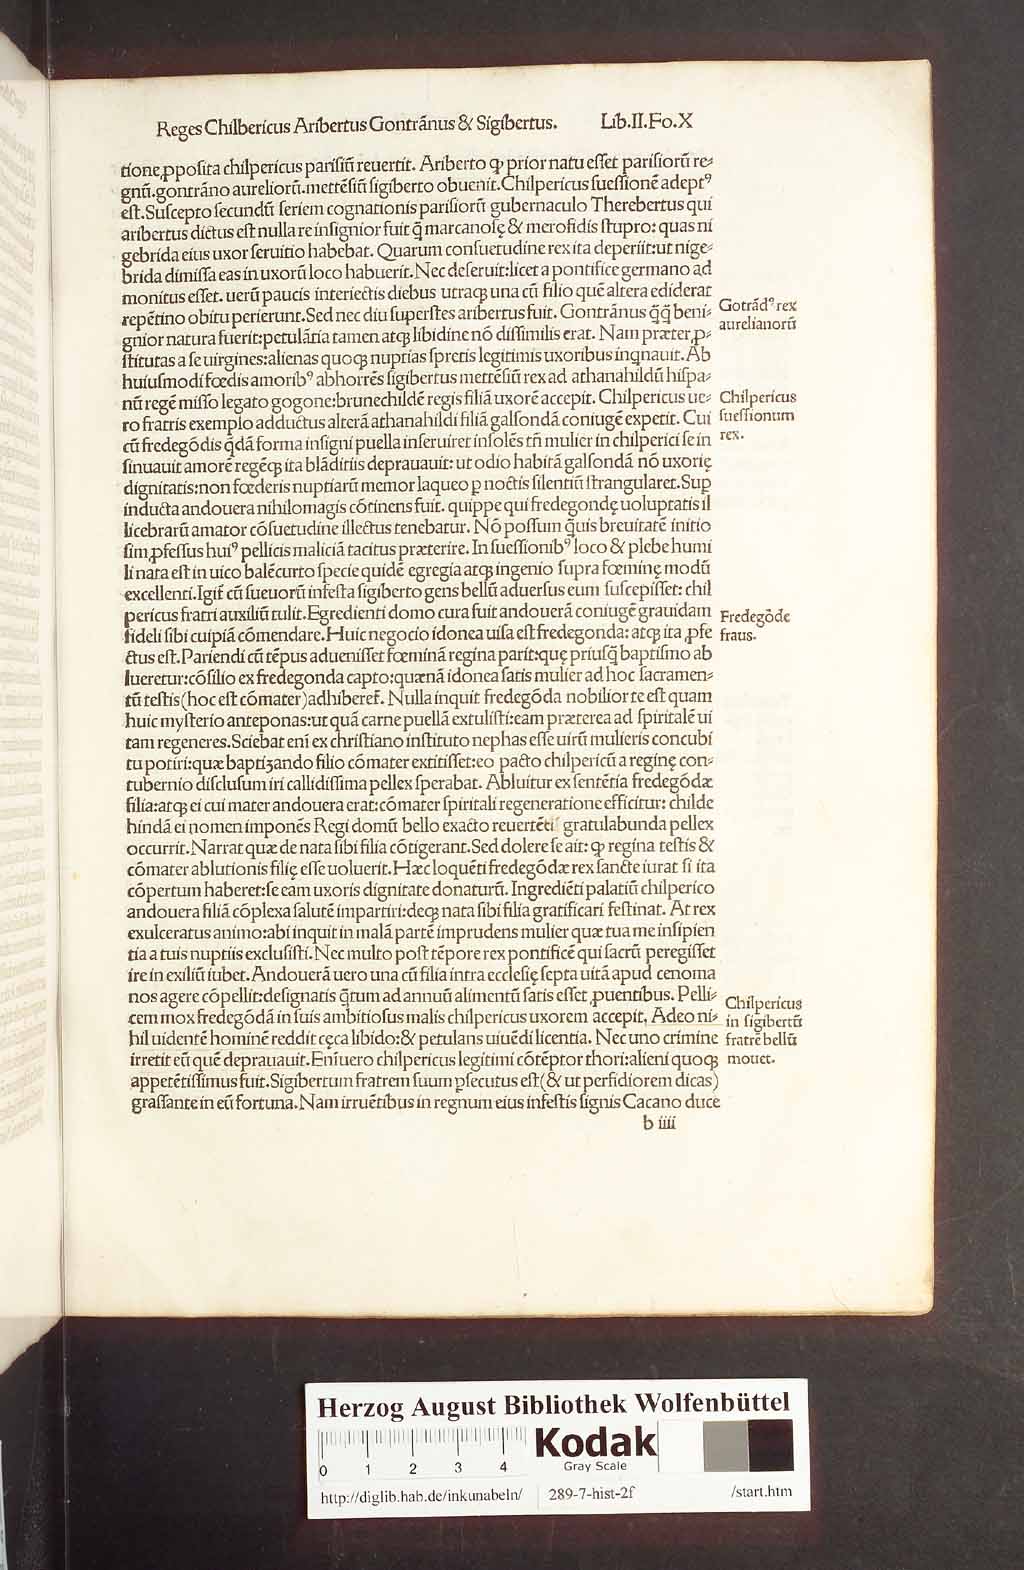 Reges Chilbericus Aribertus Gontrãnus & Sigibertus. Lib.II.Fo.X
tione ꝓposita chilpericus parisiũ reuertit. Ariberto ꝙ prior natu esset parisiorũ re-
gnũ.gontrãno aureliorũ.mettẽsiũ sigiberto obuenit.Chilpericus suessionẽ adeptꝰ
est.Suscepto secundũ seriem cognationis parisiorũ gubernaculo Therebertus qui
aribertus dictus est nulla re insignior fuit q̃ marcanosę & merofidis stupro: quas ni
gebrida eius uxor seruitio habebat. Quarum consuetudine rex ita deperiit:ut nige-
brida dimissa eas in uxorũ loco habuerit.Nec deseruit:licet a pontifice germano ad
monitus esset. uerũ paucis interiectis diebus utraqꝫ una cũ filio quẽ altera ediderat
repẽtino obitu perierunt.Sed nec diu superstes aribertus fuit. Gontrãnus q̃q̃ beni-
gnior natura fuerit:petulãtia tamen atqꝫ libidine nõ dissimilis erat. Nam præter ꝓ-
stitutas a se uirgines:alienas quoqꝫ nuptias spretis legitimis uxoribus inqnauit.Ab
huiusmodi fœdis amoribꝰ abhorrẽs sigibertus mettẽsiũ rex ad athanahildũ hispa-
nũ regẽ misso legato gogone:brunechildẽ regis filiã uxorẽ accepit. Chilpericus ue-
ro fratris exemplo adductus alterã athanahildi filiã galsondã coniugẽ expetit. Cui
cũ fredegõdis q̃dã forma insigni puella inseruiret insolẽs tñ mulier in chilperici se in
sinuauit amorẽ regẽqꝫ ita blãditiis deprauauit: ut odio habitã galsondã nõ uxorię
dignitatis:non fœderis nuptiarũ memor laqueo p noctis silentiũ strangularet.Sup
inducta andouera nihilomagis cõtinens fuit. quippe qui fredegondę uoluptatis il
licebrarũ amator cõsuetudine illectus tenebatur. Nõ possum q̃uis breuitatẽ initio
sim ꝓfessus huiꝰ pellicis maliciã tacitus præterire. In suessionibꝰ loco & plebe humi
li nata est in uico balẽcurto specie quidẽ egregia atqꝫ ingenio supra fœminę modũ
excellenti.Igit̃ cũ sueuorũ infesta sigiberto gens bellũ aduersus eum suscepisset: chil
pericus fratri auxiliũ tulit.Egredienti domo cura fuit andouerã coniugẽ grauidam
fideli sibi cuipiã cõmendare.Huic negocio idonea uisa est fredegonda: atqꝫ ita ꝓfe
ctus est.Pariendi cũ tẽpus aduenisset fœminã regina parit:quę priusq̃ baptismo ab
lueretur:cõsilio ex fredegonda capto:quænã idonea satis mulier ad hoc sacramen-
tũ testis(hoc est cõmater)adhiberet̃. Nulla inquit fredegõda nobilior te est quam
huic mysterio anteponas:ut quã carne puellã extulisti:eam præterea ad spiritalẽ ui
tam regeneres.Sciebat eni ex christiano instituto nephas esse uirũ mulieris concubi
tu potiri:quæ baptizando filio cõmater extitisset:eo pacto chilpericũ a reginę con-
tubernio disclusum iri callidissima pellex sperabat. Abluitur ex sentẽtia fredegõdæ
filia:atqꝫ ei cui mater andouera erat:cõmater spiritali regeneratione efficitur: childe
hindã ei nomen imponẽs Regi domũ bello exacto reuertẽti gratulabunda pellex
occurrit.Narrat quæ de nata sibi filia cõtigerant.Sed dolere se ait: ꝙ regina testis &
cõmater ablutionis filię esse uoluerit.Hæc loquẽti fredegõdæ rex sancte iurat si ita
cõpertum haberet:se eam uxoris dignitate donaturũ. Ingrediẽti palatiũ chilperico
andouera filiã cõplexa salutẽ impartiri:deqꝫ nata sibi filia gratificari festinat. At rex
exulceratus animo:abi inquit in malã partẽ imprudens mulier quæ tua me insipien
tia a tuis nuptiis exclusisti.Nec multo post tẽpore rex pontificẽ qui sacrũ peregisset
ire in exiliũ iubet.Andouerã uero una cũ filia intra ecclesię septa uitã apud cenoma
nos agere cõpellit:designatis q̃tum ad annuũ alimentũ satis esset ꝓuentibus. Pelli-
cem mox fredegõdã in suis ambitiosus malis chilpericus uxorem accepit. Adeo ni-
hil uidentẽ hominẽ reddit cęca libido:& petulans uiuẽdi licentia. Nec uno crimine
irretit eũ quẽ deprauauit. Enĩuero chilpericus legitimi cõtẽptor thori:alieni quoqꝫ
appetẽtissimus fuit.Sigibertum fratrem suum ꝑsecutus est(& ut perfidiorem dicas)
grassante in eũ fortuna.Nam irruẽtibus in regnum eius infestis signis Cacano duce
b iiii
Gotrãdꝰ rex
aurelianorũ
Chilpericus
suessionum
rex.
Fredegõde
fraus.
Chilpericus
in sigibertũ
fratrẽ bellũ
mouet.
Herzog August Bibliothek Wolfenbüttel
0 1 2 3 4
Kodak
Gray Scale
http://diglib.hab.de/inkunabeln/ 289-7-hist-2f /start.htm